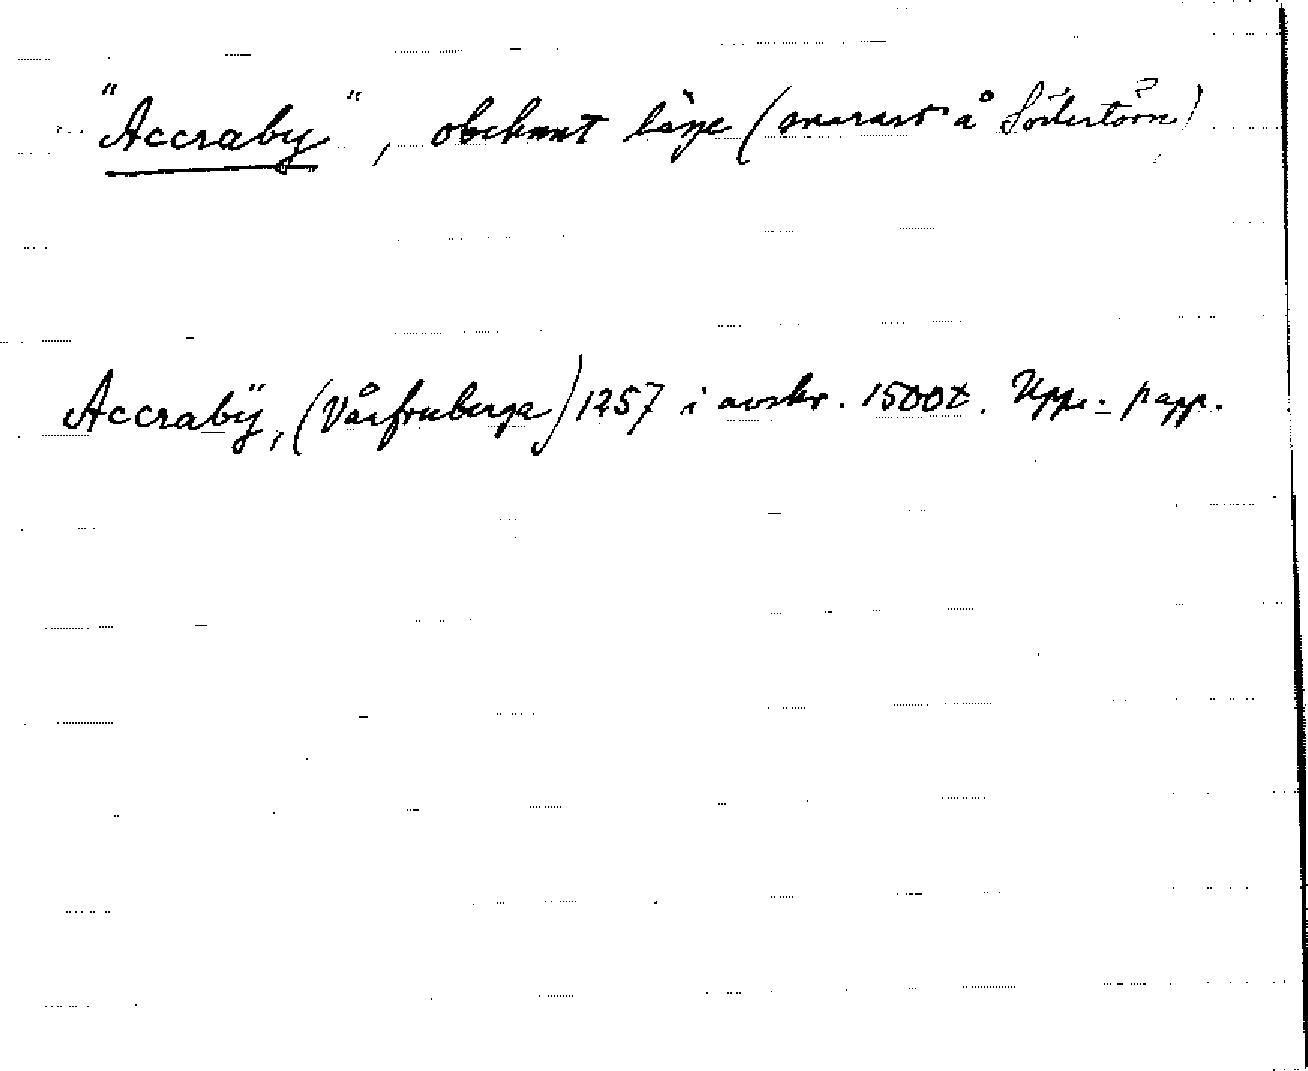 "Accraby", obekant läge (snarast å Södertörn)
Accrabÿ, (Vårfruberga) 1257 i avskr. 1500t. Upps.- papp.